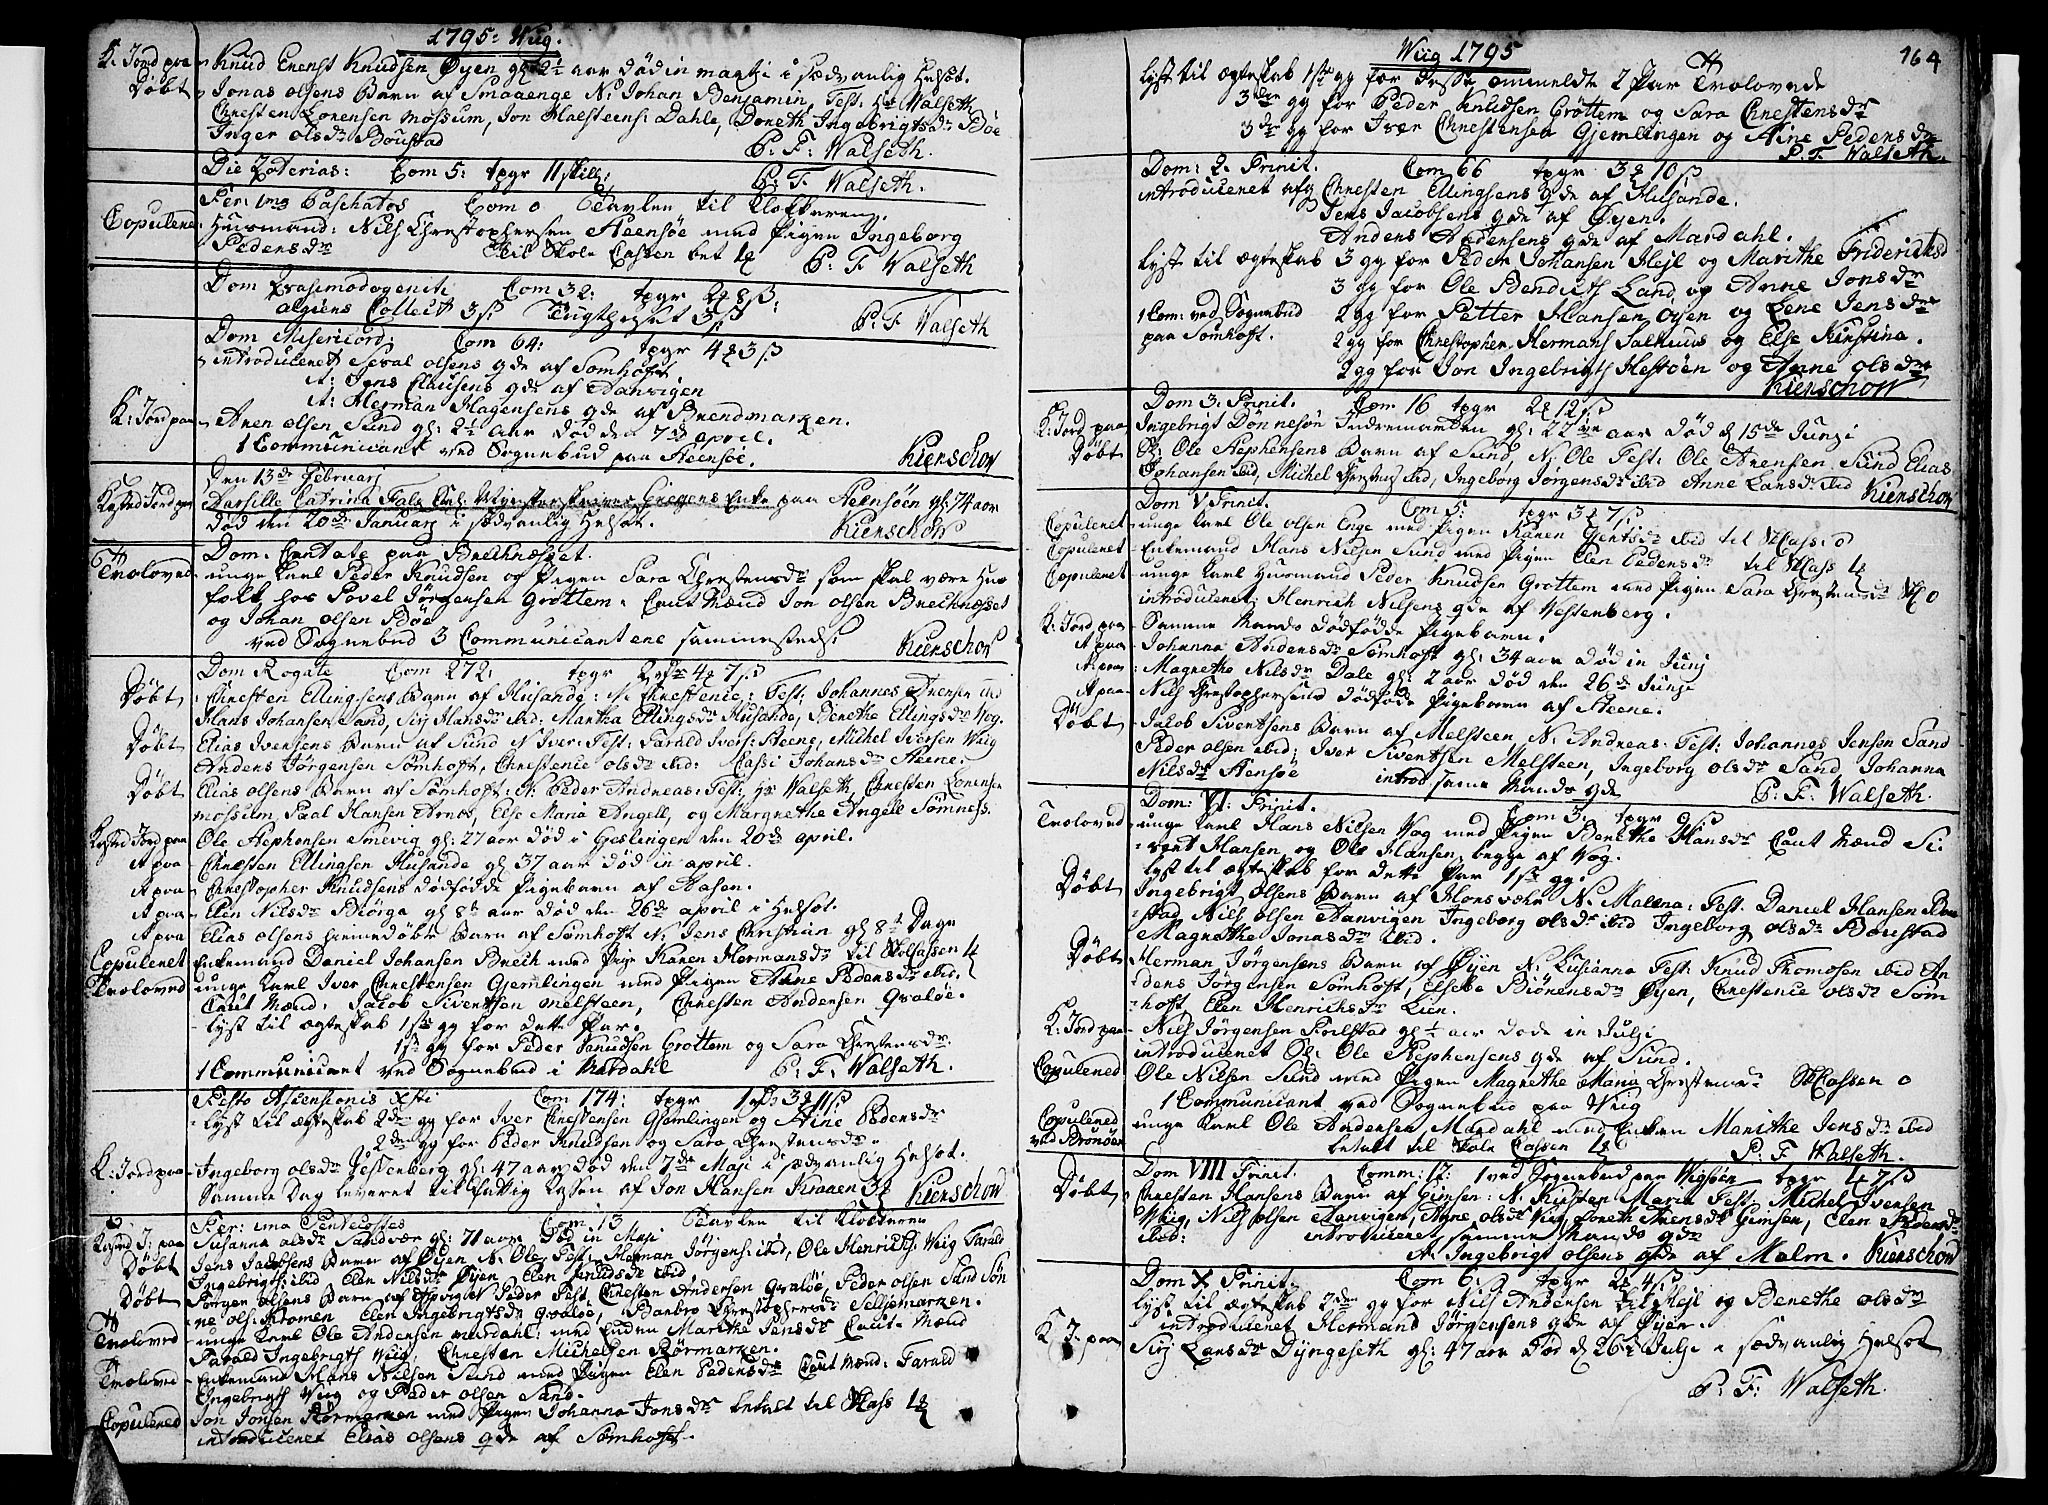 1795: Wiig.
K: Jord paa Knud Ernst Knudsen Øyen gl: 2½ aar død in martj i sædvanlig Helsot.
Døbt Jonas olsens Barn af Smaaenge N: Johan Benjamin, Test: Hr Walseth
Chresten Lorensen mossum, Jon Halsteens: Dahle, Doreth Ingebrigtsdr Bøe
Inger olsdr Boustad P: F: Walseth.
Die Zoterias: Com 5: tpgr 11 skill; P: F: Walseth.
Fer: 1ma Paschatos Com 0 Tavlen til Klokkeren,
Copuleret Huusmand: Nils Chrestophersen Steensøe med Pigen Ingeborg
Pedersdr til Skole Cassen bet P: F Walseth
Dom Qvasimodogeniti Com 32: tpgr
algiers Collect 3ß Tugthuset 3ß P: F. Walseth
Dom Misericord: Com 64: tpgr
introduceret Seval olsens qde af Somhoft
A: Jens Clausens qde af Aanvigen
A: Herman Hagensens qde af Brendmarken.
K: Jord paa Aren olsen Sund gl: 2½ aar død den 7de april.
1 Communicant ved Sognebud paa Steensøe. Kierschow
Den 13de Februarj
Kasted Jord paa Catrina Falc Enke paa Steensøen gl: 74 aar
død den 20de Januarj i sædvanlig Helsot. Kierschow
Dom. Cantate paa Brechnesset.
Troloved unge karl Peder Knudsen og Pigen Sara Chrestensdr som skal være Huus
folk hos Povel Jørgensen Grøttem. Caut Mænd Jon olsen Brechnesset
og Johan olsen Bøe
ved Sognebud 3 Communicantere sammesteds: Kierschow
Dom Rogate Com 272: tpgr
Døbt Chresten Ellingsens Barn af Husande: N: Chrestence: Test: Johannes
Hans Johansen Sand, Siri Hansdr ibid: Martha Ellingsdr Husande, Berethe Ellingsdr Vog.
Døbt Elias Iversens Barn af Sund N Iver: Test: Tarald Ivers: Steene, Michel Iversen Wiig
Anders Jørgensen Sømhoft, Chrestence olsdr ibid: Cassi Johansdr Steene.
Døbt Elias olsens Barn af Sømhoft: N: Peder Andreas: Test: Hr Walseth, Chresten Lorensen
mossum, Paal Hansen Arnøe, Else Maria Angell, og Margrethe Angell Sømness.
Kasted Jord paa Ole Stephensen Smevig gl: 27 aar død i Geslingen den 20de april.
A paa Chresten Ellingsen Husande gl 37 aar død in april.
A paa Chrestopher Knudsens dødfødde Pigebarn af Aasen.
A paa Elen Nilsdr Biørga gl 8t aar død den 26de april i Helsot.
A paa Elias olsens hiemedøbte Barn af Sømhoft N: Jens Christian gl 8t Dage
Copuleret Enkemand Daniel Johansen Brech med Pige Karen Hermansdr til
Troloved unge karl Iver Chrestensen Gjemlingen med Pigen Anne Pedersdr ibid:
Caut Mænd: Jacob Sivertsen melsteen, Chresten Andersen Qvaløe.
lyst til ægteskab 1ste gg for dette Par.
1ste gg for Peder Knudsen Grøttem og Sara Chrestensdr.
1 Communicant ved Sognebud i Mardahl P: F: Walseth.
Festo Ascensionis Xsti Com 174: tpgr
lyst til ægteskab 2den gg for Iver Chrestensen Gjemlingen og Ane Pedersdr
2den gg for Peder Knudsen og Sara Chrestensdr.
K: Jord paa Ingeborg olsdr Vestenberg gl: 47 aar død den 7de Maji i sædvanlig Helsot.
Samme Dag leveret til fattig Cassen af Jon Hansen Kraaen Kierschow
Fer: 1ma Pentecostes Com. 13 Tavlen til Klokkeren
Kasted J: paa Susanna olsdr Sandvær gl: 71 aar død in Maji
Døbt Jens Jacobsens Barn af Øyen N. Ole Test: Herman Jørgens: ibid, Ole Henrichs: Wiig Tarald
Ingebrigts: ibid Elen Nilsdr Øyen Elen Knudsdr ibid
Døbt Jørgen olsens Barn af N. Peder Test Chresten Andersen Qvaløe, Peder olsen Sand Søn
ne ols: Elen Ingebrigtsdr Qvaløe, Barbro Chrestophersdr Seltjemarken.
Troloved unge karl Ole Andersen mardahl: med Enken Marithe Jensdr Caut-Mænd
Tarald Ingebrigts Wiig, Chresten Michelsen Rørmarken.
Trolovad Enkemand Hans Nilsen Sund med Pigen Elen Pedersdr Caut Mænd: Tarald
Ingebrigts Wiig og Peder olsen Sand.
Copulered Jon Jonsen Rørmarken med Pigen Johanna Jonsdr betalt til
introduceret Elias olsens qde af Sømhoft.
Wiig 1795
164
lyst til ægteskab 1ste gg for disse ommeldte 2 Par Trolovede
3die gg for Peder Knudsen Grøttem og Sara Chrestensdr
3die gg for Iver Chrestensen Gjemlingen og Ane Pedersdr
P. F. Walseth.
Dom: 2. Trinit. Com 66 tpgr
introduceret Chresten Ellingsens qde af Husande.
Jens Jacobsens qde af Øyen.
Anders Andersens qde af Mardahl.
lyst til ægteskab 3 gg for Peder Johansen Hejl og Marithe Friderichsd
3 gg for Ole Bendicth Land og Anne Jonsdr
1 Com: ved Sognebud 2 gg for Petter Hansen Øyen og Lene Jensdr
paa Sømhoft. 2 gg for Chrestopher Hermans Salhuus og Else Kirstina.
2 gg for Jon Ingebrigts Hestøen og Anne olsdr
Kierschow
Dom 3. Trinit. Com 16 tpgr
K: Jord paa Ingebrigt Dønnesøn Indremarken gl: 22 aar død d 15de Junji
Døbt Sl: Ole Stephensens Barn af Sund, N: Ole Test: Ole Arensen Sund Elias
Johansen ibid, Michel Chrestens: ibid, Ingeborg Jørgensdr ibid Anne Larsdr ibid Kierschow
Dom V Trinit. Com 5: tpgr
Copuleret unge karl Ole olsen Enge med Pigen Karen Gjertsdr ibid til 0
Copuleret Enkemand Hans Nilsen Sund med Pigen Elen Pedersdr til
Copuleret unge karl Huusmand Peder Knudsen Grøttem med Pigen Sara Chrestensdr 0
introduceret: Henrich Nilsens qde af Vestenberg.
K: Jord paa Samme Mands dødfødde Pigebarn.
A paa Johanna Andersdr Sømhoft gl: 34 aar død in Junj
A paa Magrethe Nilsdr Dale gl: 2 aar død den 26de Junji
A paa Nils Chrestophersens dødfødde Pigebarn af Steene.
Døbt Jacob Sivertsens Barn af Melsteen N: Andreas. Test: Johannes Jensen Sand
Peder olsen ibid: Iver Sivertsen Melsteen, Ingeborg olsdr Sand, Johanna
Nilsdr Stensøe introd: samme Mands qde P: F: Walseth.
Dom: VI: Trinit. Com 3: tpgr 0
Trolovad unge karl Hans Nilsen Vog med Pigen Berethe Hansdr Caut Mænd Si-
vert Hansen, og Ole Hansen, begge af Vog.
lyst til ægteskab for dette Par 1ste gg:
Døbt Ingebrigt olsens Barn af Hornsvehr N: Malena: Test. Daniel Hansen Bou
stad Nils olsen Aanvigen Ingeborg olsdr ibid Ingeborg olsdr Boustad
Magrethe Jonasdr ibid.
Døbt Herman Jørgensens Barn af Øyen N: Lusianna Test: Knud Thomesen ibid An
ders Jørgensen Sømhoft, Elsebe Biørensdr Øyen, Chrestence olsdr Søm
hoft, Elen Henrichsdr Lien.
K: Jord paa Nils Jørgensen Trilstad gl ½ aar døde in Julji
introduceret Sl: Ole Stephensens qde af Sund.
Copulered Ole Nilsen Sund med Pigen Magrethe Maria Chrestens 0
1 Communicant ved Sognebud paa Wiig
Copulered ved Brønøe unge karl Ole Andersen Mardahl med Enken Marithe Jensdr ibid
betalt til Cassen P: F Walseth.
Dom VIII Trinit. Comm: 17: 1 ved Sognebud paa Vigsøen tpgr
Døbt Chresten Hansens Barn af Gimsen: N: Kirsten Maria Test: Michel Iversen
Wiig, Nils olsen Aanvigen, Anne olsdr Wiig Doreth Arensdr Gimsen, Elen
ibid: introduceret samme Mands qde
A: Ingebrigt olsens qde af Malm. Kierschow
Dom X Trinit. Com 6: tpgr
lyst til ægteskab 2den gg for Nils Andersen Hejl og Berethe olsdr
introduceret Hermand Jørgensens qde af Øyen.
K: J: paa Sirj Larsdr Dyngeseth gl: 47 aar død d 26de Julji i sædvanlig Helsot
P: F: Walseth.